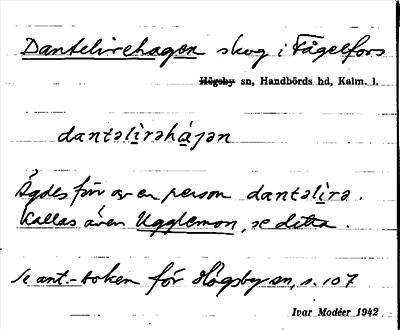 Dantelirehagen skog i Fågelfors
Högsby sn, Handbörds hd, Kalm. l.
dantəli̱rəhá̱jən
Ägdes förr av en person dantəli̱rə.
Kallas även Ugglemon, se detta.
Se ant.-boken för Högsby sn, s. 107
Ivar Modéer 1942